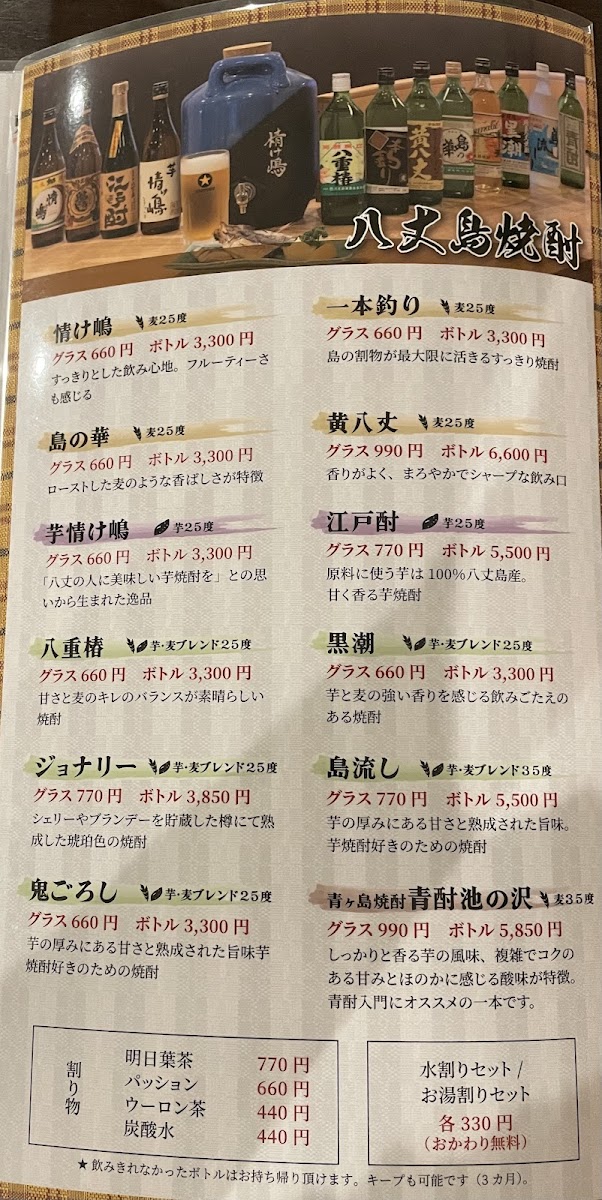 八丈島焼酎
情け嶋 麦25度
グラス 660 円 ボトル 3,300 円
すっきりとした飲み心地。フルーティーさ
も感じる
島の華 麦25度
グラス 660 円 ボトル 3,300 円
ローストした麦のような香ばしさが特徴
芋情け嶋 芋25度
グラス 660 円 ボトル 3,300 円
「八丈の人に美味しい芋焼酎を」との思
いから生まれた逸品
八重椿 芋・麦ブレンド25度
グラス 660 円 ボトル 3,300 円
甘さと麦のキレのバランスが素晴らしい
焼酎
ジョナリー 芋・麦ブレンド25度
グラス 770 円 ボトル 3,850 円
シェリーやブランデーを貯蔵した樽にて熟
成した琥珀色の焼酎
鬼ごろし 芋・麦ブレンド25度
グラス 660 円 ボトル 3,300 円
芋の厚みにある甘さと熟成された旨味芋
焼酎好きのための焼酎
一本釣り 麦25度
グラス 660 円 ボトル 3,300 円
島の割物が最大限に活きるすっきり焼酎
黄八丈 麦25度
グラス 990 円 ボトル 6,600 円
香りがよく、まろやかでシャープな飲み口
江戸酎 芋25度
グラス 770 円 ボトル 5,500 円
原料に使う芋は 100%八丈島産。
甘く香る芋焼酎
黒潮 芋・麦ブレンド25度
グラス 660 円 ボトル 3,300 円
芋と麦の強い香りを感じる飲みごたえの
ある焼酎
島流し 芋・麦ブレンド35度
グラス 770 円 ボトル 5,500 円
芋の厚みにある甘さと熟成された旨味。
芋焼酎好きのための焼酎
青ヶ島焼酎 青酎池の沢 麦35度
グラス 990 円 ボトル 5,850 円
しっかりと香る芋の風味、複雑でコクの
ある甘みとほのかに感じる酸味が特徴。
青酎入門にオススメの一本です。
割り物
明日葉茶 770 円
パッション 660 円
ウーロン茶 440 円
炭酸水 440 円
水割りセット /
お湯割りセット
各 330 円
(おかわり無料)
★飲みきれなかったボトルはお持ち帰り頂けます。キープも可能です(3カ月)。
情け嶋
江戸酎
芋 情け嶋
情け嶋
八重椿
黄八丈
島の華
黒潮
島流し
青酎